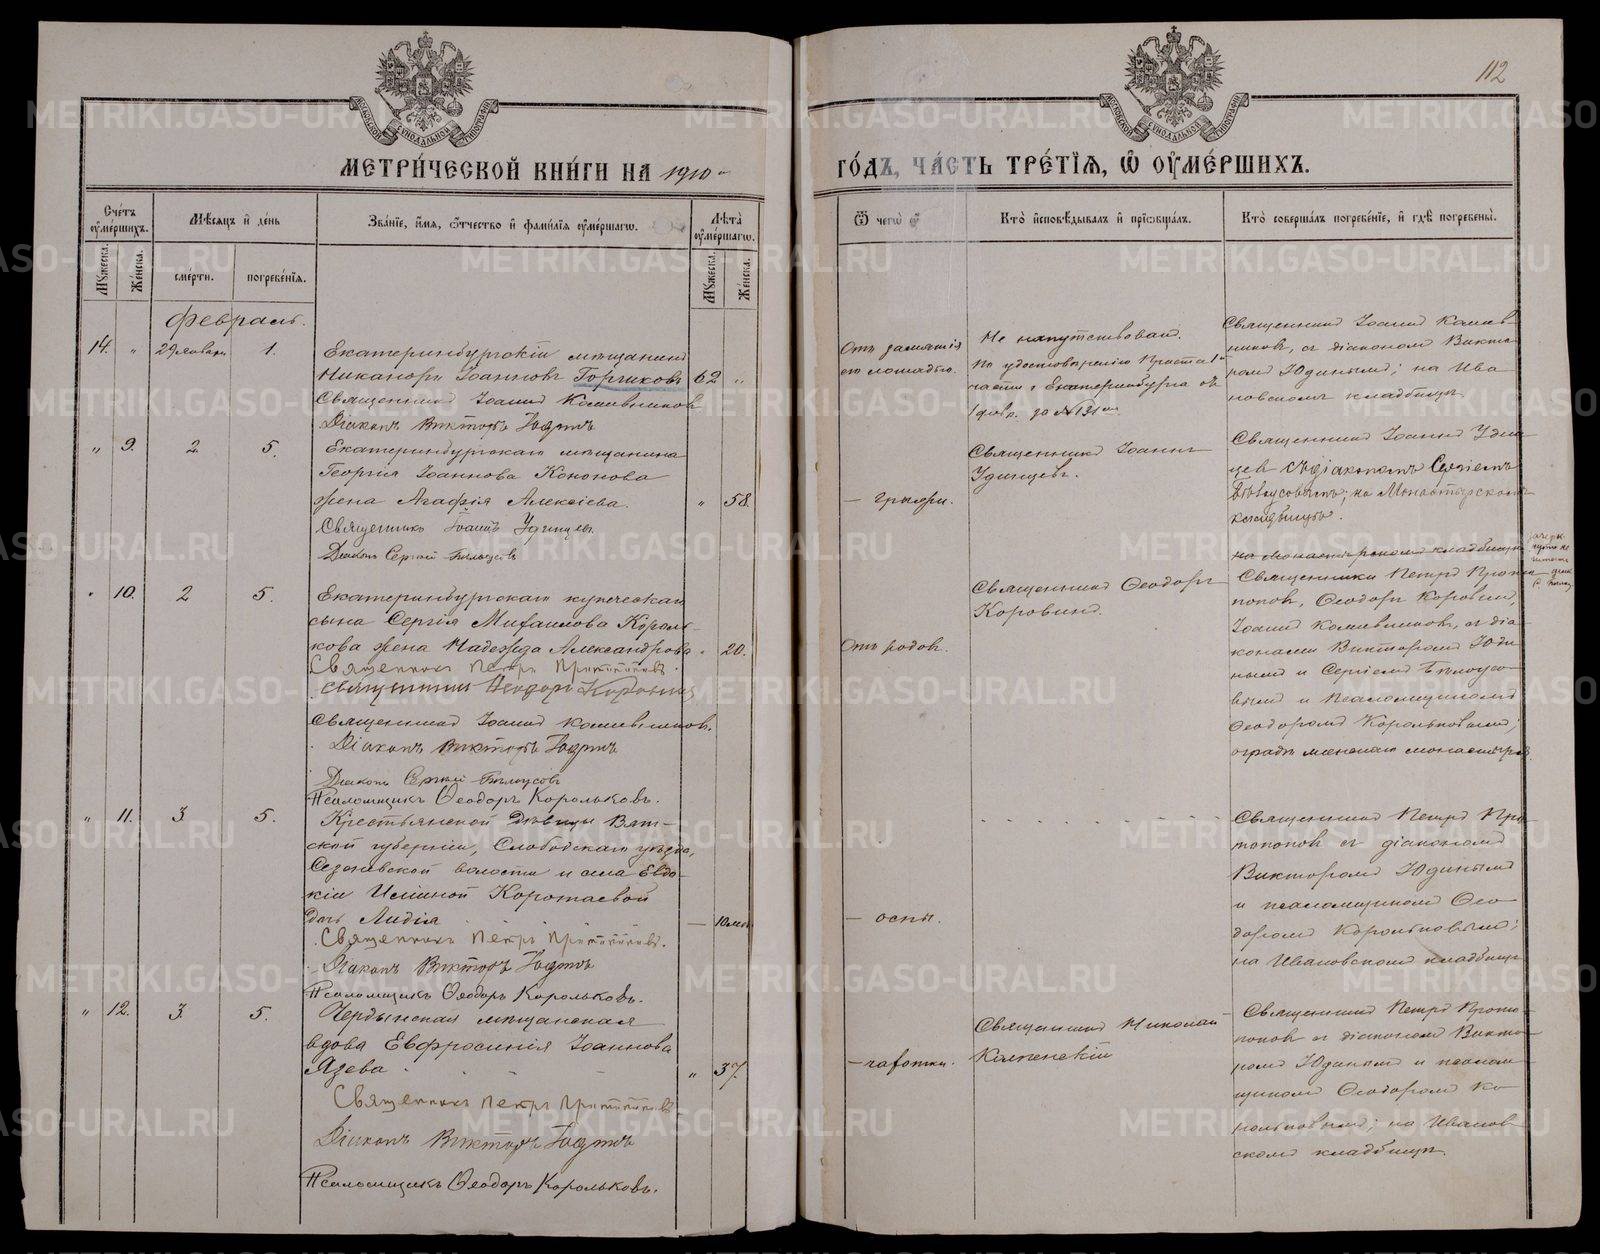 112
МОСКОВСКОЙ СѴНОДАЛЬНОЙ ТИПОГРАФІИ
МОСКОВСКОЙ СѴНОДАЛЬНОЙ ТИПОГРАФІИ
МЕТРИ́ЧЕСКОЙ КНИ́ГИ НА 1910
ГО́ДЪ, ЧА́СТЬ ТРЕ́ТІЯ, Ѡ҆ ОУ҆МЕ́РШИХЪ.
Счетъ оумершихъ.
Мѣсяцъ и день
Званіе, имя, отчество и фамилія оумершагѡ.
Лѣта оумершагѡ.
Ѿ чегѡ
Кто исповѣдывалъ и пріѡбщалъ.
Кто совершалъ погребеніе, и гдѣ погребены.
Мужеска.
Женска.
смерти.
погребенія.
Мужеска.
Женска.
Февраль.
14. „ 29 января 1.
Екатеринбургскій мѣщанинъ
Никаноръ Іоанновъ Горчиковъ 62 „
Священникъ Іоаннъ Камивниковъ
Діаконъ Викторъ Юдинъ
Не напутствован.
По удостовѣренію Пристава 1
части г Екатеринбурга отъ
1 февр. за № 121
Священникъ Іоаннъ
никовъ, съ діакономъ Викто-
ромъ Юдинымъ; на Ива-
новскомъ кладбищѣ.
„ 9. 2 5.
Екатеринбургскаго мѣщанина
Георгія Іоаннова Кононова
жена Агафія Алексіева. „ 58.
Священникъ Іоаннъ Удинцевъ
Діаконъ Сергій Бѣлоусовъ
— грыжи.
Священникъ Іоаннъ
Удинцевъ.
Священникъ Іоаннъ Удин-
цев съ діакономъ Сергіемъ
Бѣлоусовымъ; на Монастырскомъ
кладбищѣ.
на Монастырскомъ кладбищѣ
„ 10. 2 5.
Екатеринбургскаго купеческаго
сына Сергія Михаилова Король-
кова жена Надежда Александрова „ 20.
Священникъ Петръ Протопоповъ.
Священникъ Ѳеодоръ Коровинъ
Священникъ Іоаннъ Камивниковъ.
Діаконъ Викторъ Юдинъ
Діаконъ Сергій Бѣлоусовъ
Псаломщикъ Ѳеодоръ Корольковъ.
Отъ родов.
Священникъ Ѳеодоръ
Коровинъ.
Священники Петръ Прото-
попов, Ѳеодоръ Коровинъ,
Іоаннъ Камивниковъ, съ діа-
конами Викторомъ Юди-
нымъ и Сергіемъ Бѣлоусо-
вымъ и псаломщикомъ
Ѳеодоромъ Корольковымъ;
оградѣ женскаго монастыря
„ 11. 3 5.
Крестьянской дѣвицы Вят-
ской губерніи, Слободскаго уѣзда,
волости и села Евдо-
кіи Ильиной Коротаевой
дочь Лидія — 10 мѣс.
Священникъ Петръ Протопоповъ.
Діаконъ Викторъ Юдинъ
Псаломщикъ Ѳеодоръ Корольковъ.
— оспы.
Священникъ Петръ Про-
топопов съ діакономъ
Викторомъ Юдинымъ
и псаломщикомъ Ѳео-
доромъ Корольковымъ;
на Ивановскомъ кладбищѣ
„ 12. 3. 5.
Чердынская мѣщанская
вдова Евфросинія Іоаннова
Язева „ 37.
Священникъ Петръ Протопоповъ
Діаконъ Викторъ Юдинъ
Псаломщикъ Ѳеодоръ Корольковъ.
— чахотки.
Священникъ Николай
Священникъ Петръ Прото-
попов съ діакономъ Викто-
ромъ Юдинымъ и псалом-
щикомъ Ѳеодоромъ Ко-
рольковымъ; на Иванов-
скомъ кладбищѣ.
METRIKI.GASO-URAL.RU